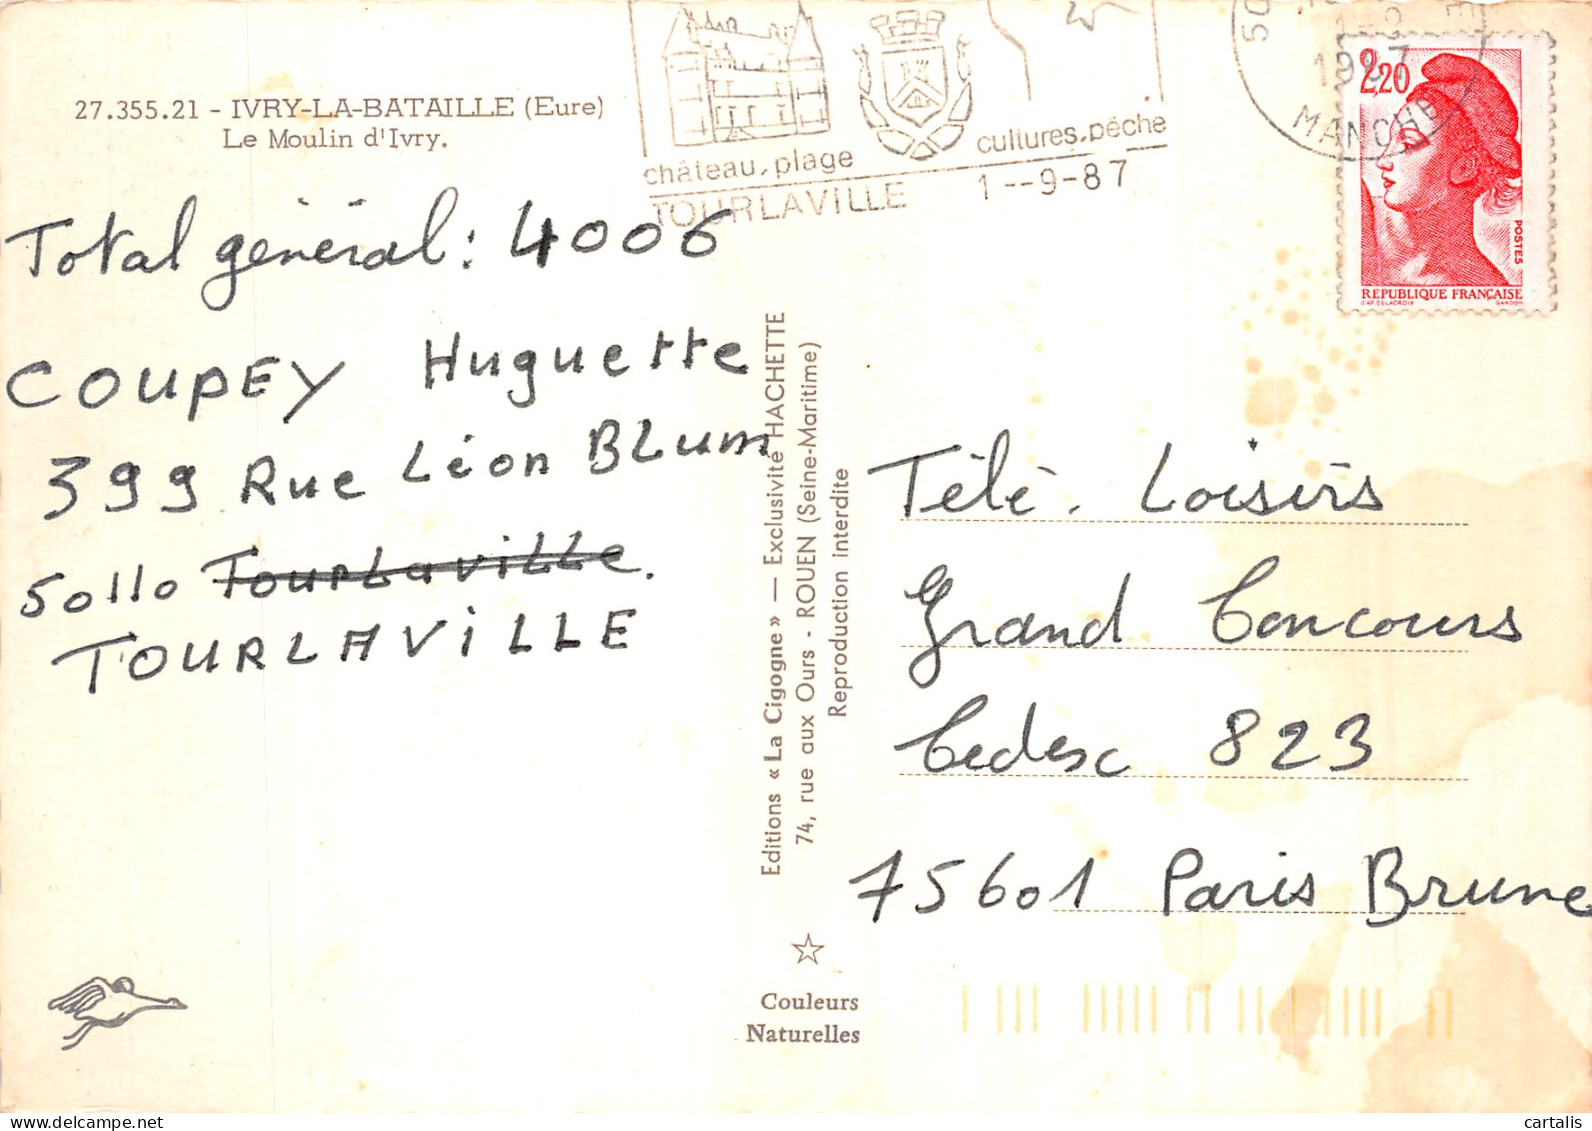 27.355.21 - IVRY-LA-BATAILLE (Eure)
Le Moulin d'Ivry.
château, plage
cultures, pêche
TOURLAVILLE
1--9-87
1987
MANCHE
2,20
POSTES
REPUBLIQUE FRANÇAISE
D'AP. DELACROIX
GANDON
Total général : 4006
COUPEY Huguette
399 Rue Léon BLum
50110 TourLaviLLe.
TOURLAViLLE
Editions « La Cigogne » — Exclusivité HACHETTE
74, rue aux Ours - ROUEN (Seine-Maritime)
Reproduction interdite
Télé. Loisirs
Grand Concours
Cedex 823
75601 Paris Brune
Couleurs
Naturelles
cartalis